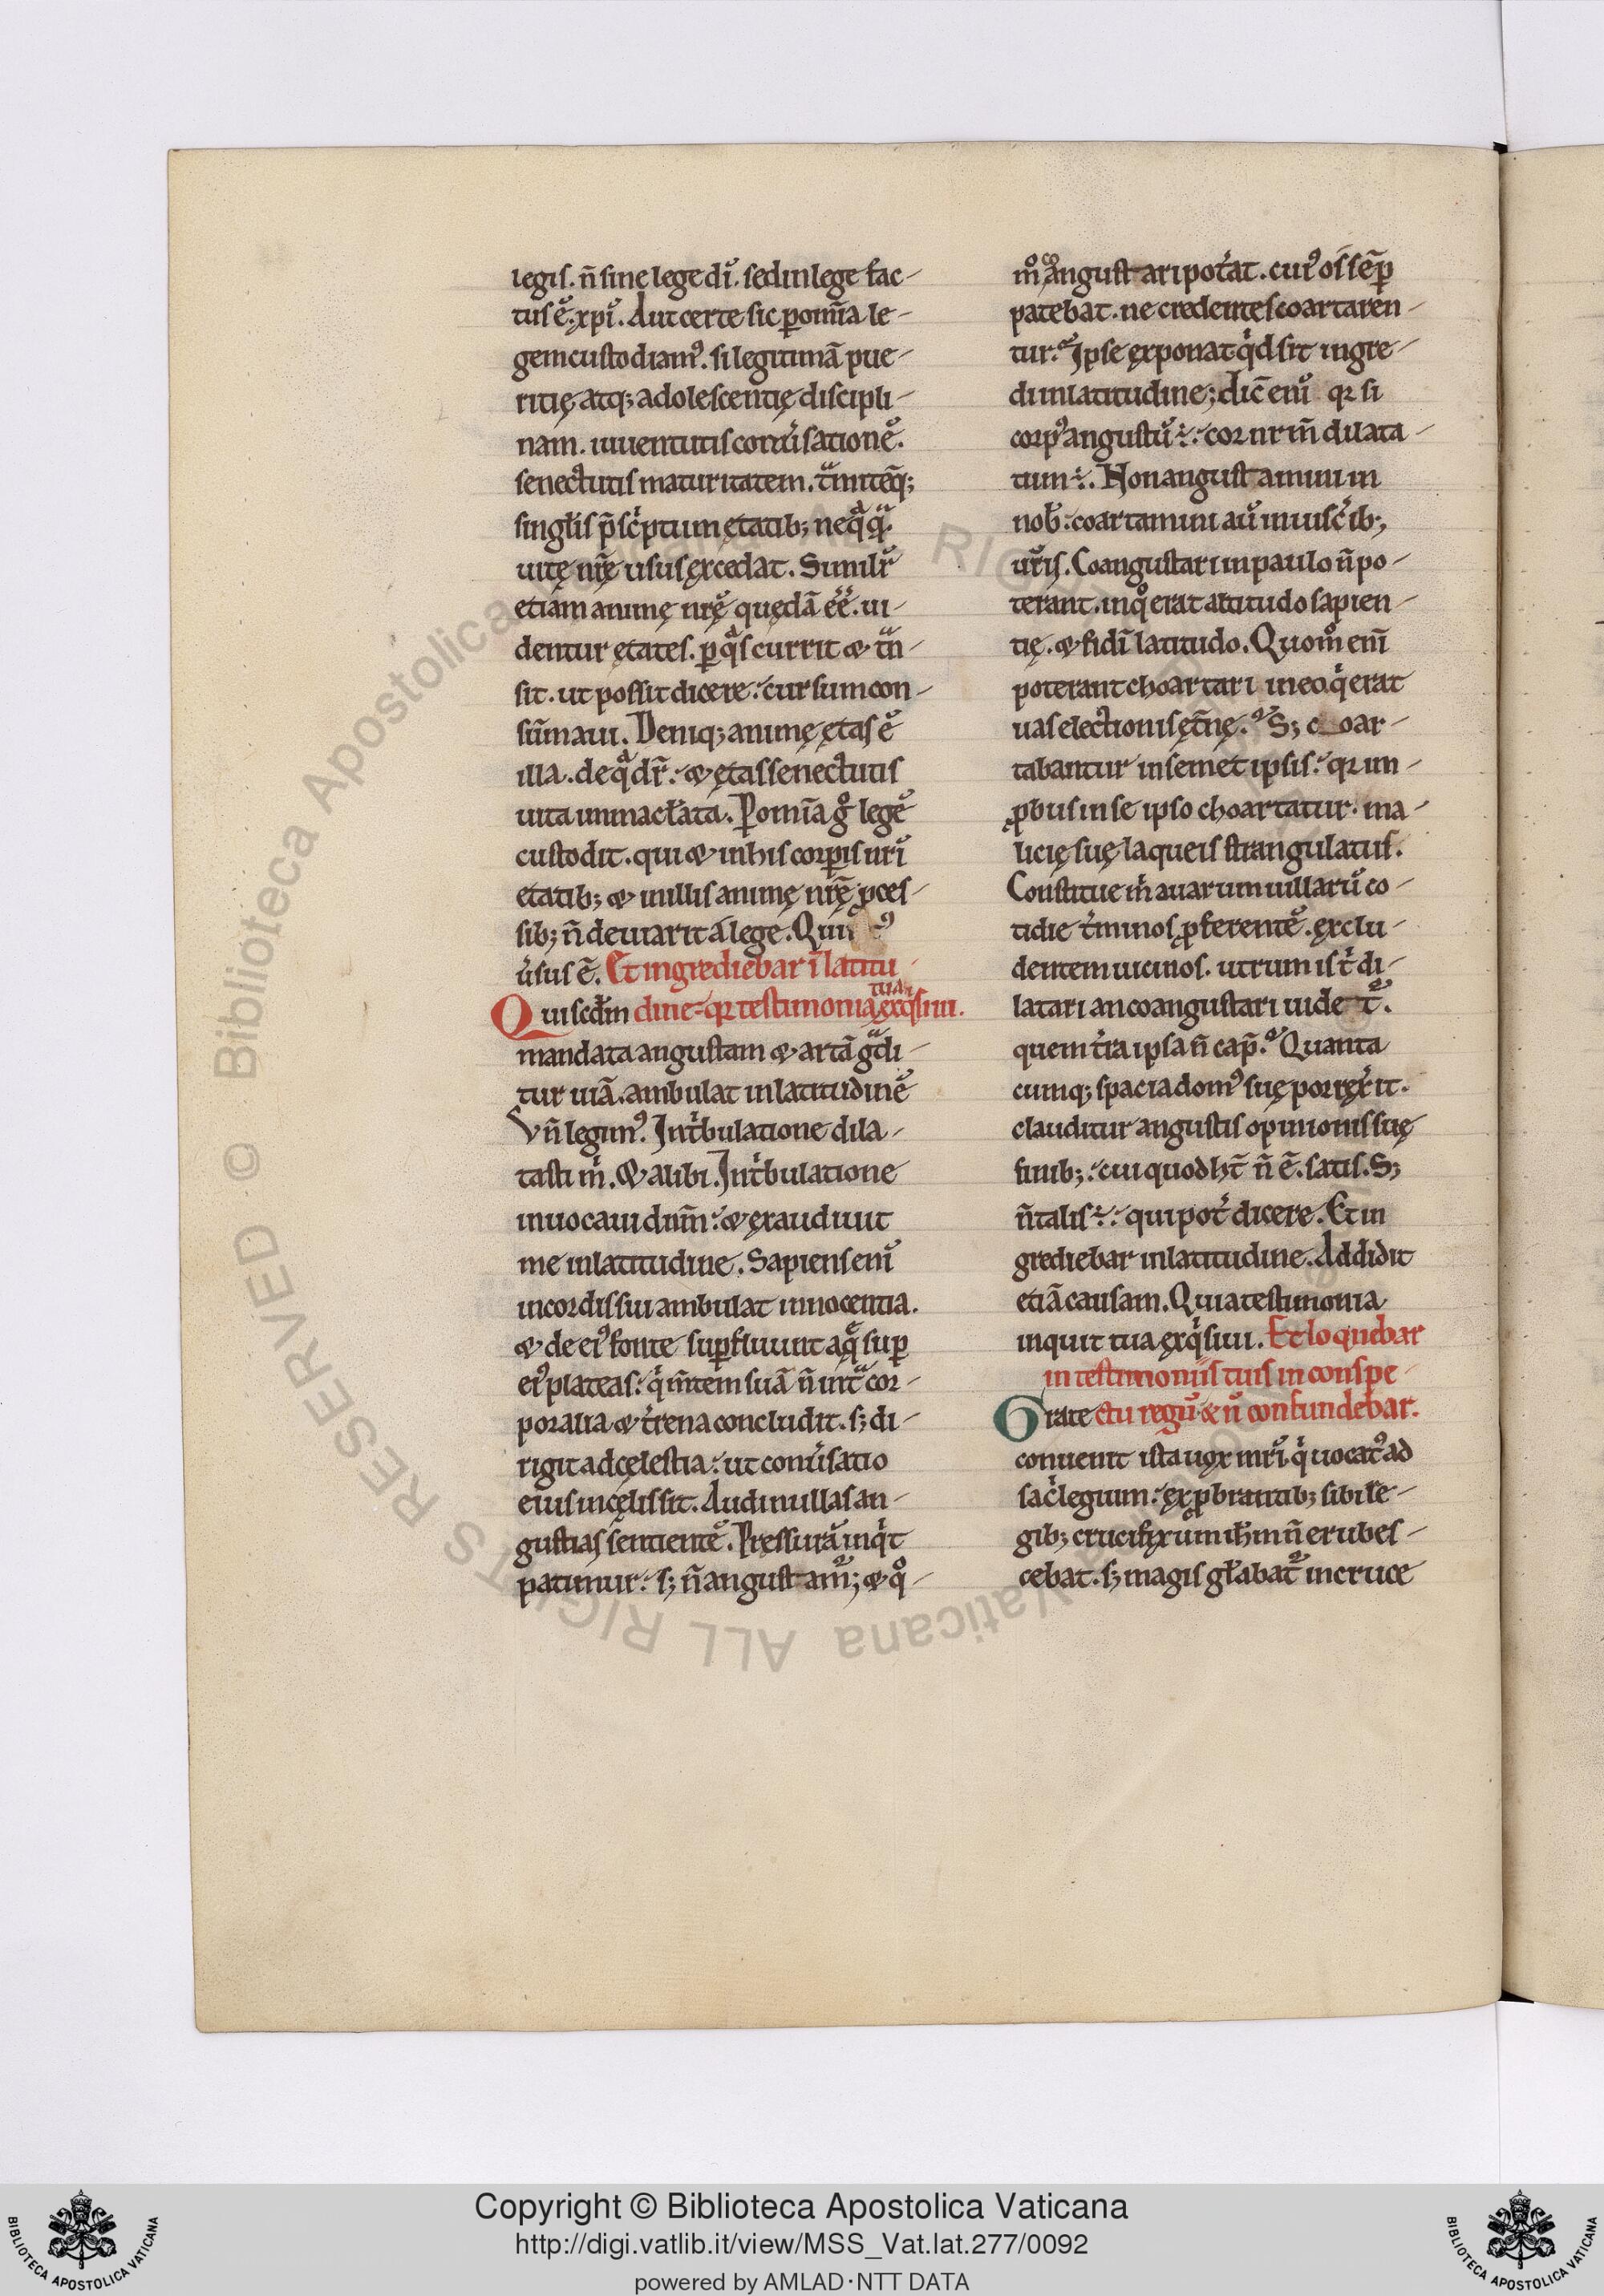 legis. n̄ sine lege dī. sed in lege fac-
tus ē. xpī. Aut certe sic p̲ om̄ia le-
gem custodiam᾽. si legitimā pue-
ritię atq; adolescentię discipli-
nam. iuuentutis conuͥsationē.
senectutis maturitatem. tͣmiteq̄;
singlis p̄scͥptum etatib; neqͣqͣ.
uitę nr̄ę usus excedat. Similr̄
etiam animę nr̄ę quędā eē. ui-
dentur ętates. p̲ qͣs currit & tͣn-
sit. ut possit dicere. cursum con-
sūmaui. Deniq; animę ętas ē
illa. de qͣ dr̄. & ętas senectutis
uita inmaclata. P̲ om̄ia gͦ legē
custodit. qui & in his corp̲is nrī
etatib; & in illis animę nr̄ę ꝓces-
sib; n̄ deuiarit a lege.
uͥsus ē. Et ingrediebar ī latitu
tua
Qui sedm̄ dine. qr testimonia exqͥsiui.
mandata angustam & artā gͣdi-
tur uiā. ambulat in latitudinē
Vn̄ legim᾽. In tͥbulatione dila-
tasti mͥ. & alibi. In tͥbulatione
inuocaui dn̄m. & exaudiuit
me in latitudine. Sapiens enī
in cordis sui ambulat innocentia.
& de ei᾽ fonte sup̲fluunt aqͤ sup̲
ei᾽ plateas. qͥ m̄tem suā n̄ intͣ cor-
poralia & tͬrena concludit. s; di-
rigit ad cęlestia. ut conuͥsatio
eius in cęlis sit. Audi nullas an-
gustias sentientē. Pressurā inqͥt
patimur. s; n̄ angustam᾽; & qͦ-
mͦ coangustari potͬat. cui᾽ os sēp̲
patebat. ne credentes coartaren-
tur. Ipse exponat qͥd sit ingre-
di in latitudine; dic̄ enī qr si
corp᾽ angustū ÷. cor nr̄m dilata-
tum ÷. Non angustamini in
nob̄. coartamini aū in uiscͥib;
ur̄is. Coangustari in paulo n̄ po-
terant. in qͦ erat altitudo sapien-
tię. & fidī latitudo. Quom̄ enī
poterant choartari in eo. qͥ erat
uas electionis ęt̄nę. S; coar-
tabantur in semet ipsis. qr im-
ꝓbus in se ipso choartatur. ma-
licię suę laqueis strangulatus.
Constitue mͥ auarum uillarū co-
tidie tͬminos ꝓferentē. exclu-
dentem uicinos. utrum is tͥ di-
latari an coangustari uidet᾽.
quem tͬra ipsa n̄ cap̄. Quanta
cumq; spacia dom᾽ suę porrexͥit.
clauditur angustis opinionis suę
finib; cui quod ht̄ n̄ ē. satis. S;
n̄ talis ÷. qui potͬ dicere. Et in
grediebar in latitudine. Addidit
etiā causam. Quia testimonia
inquit tua exqͥsiui. Et loquebar
in testimoniis tuis in conspe
Grate ctu regū & n̄ confundebar.
conuenit ista uox mr̄i. qͥ uocat᾽ ad
sacͥlegium. exꝓbrantib; sibi le-
gib; crucifixum ih̄m n̄ erubes-
cebat. s; magis glabat᾽ in cruce
Copyright © Biblioteca Apostolica Vaticana
http://digi.vatlib.it/view/MSS_Vat.lat.277/0092
powered by AMLAD·NTT DATA
BIBLIOTECA APOSTOLICA VATICANA
BIBLIOTECA APOSTOLICA VATICANA